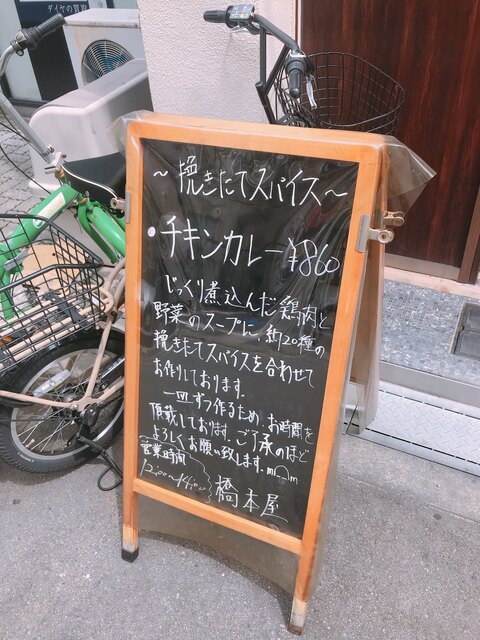 ダイヤの買取
~挽きたてスパイス~
・チキンカレー ¥860
じっくり煮込んだ鶏肉と
野菜のスープに、約20種の
挽きたてスパイスを合わせて
お作りしております。
一皿ずつ作るため、お時間を
頂戴しております。ご了承のほど
よろしくお願い致します。m(__)m
営業時間
12:00~14:00
橋本屋